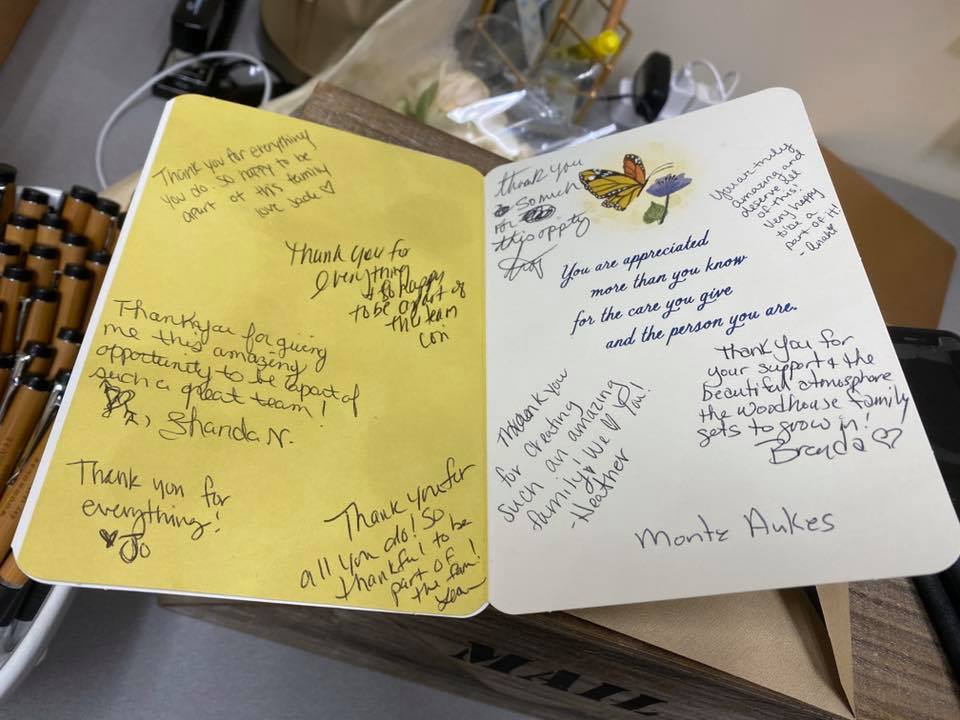 Thank you for everything
you do. So happy to be
apart of this family
love Jade
Thank you for
everything
so happy
to be apart of
the team
Cori
Thankyou for giving
me this amazing
opportunity to be apart of
such a great team!
Shanda N.
Thank you for
everything!
Jo
Thank you for
all you do! So
thankful to be
part of
the fam!
thank you
so much
for
this oppty
You are truly
amazing and
deserve all
of this!
Very happy
to be a
part of it!
You are appreciated
more than you know
for the care you give
and the person you are.
Thank you for
your support & the
beautiful atmosphere
the Woodhouse family
gets to grow in!
Brenda
Thank you
for creating
such an amazing
family! We ♡ You!
-Heather
Monte Aukes
MAIL